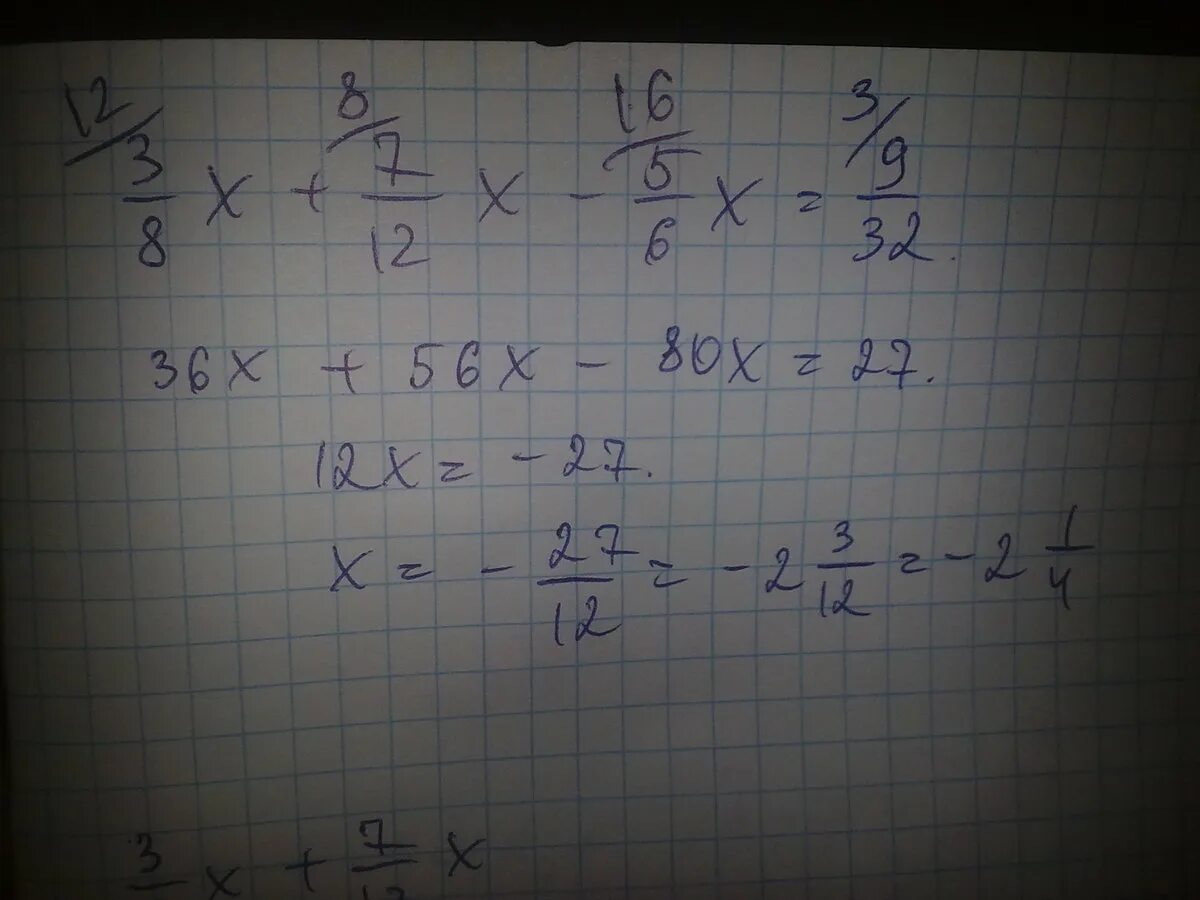 12/ 3/8 x + 8/ 7/12 x - 16/ 5/6 x = 3/ 9/32.
36x + 56x - 80x = 27.
12x = -27.
x = - 27/12 = -2 3/12 = -2 1/4
3 x + 7/12 x